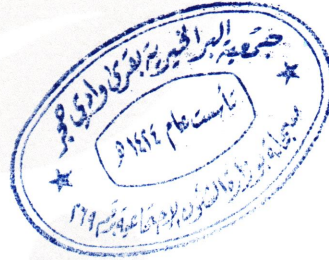 جمعية البر الخيرية بقرى وادي حجر
تأسست عام ١٤١٤ هـ
مسجلة بوزارة الشئون الاجتماعية برقم ٢٦٩